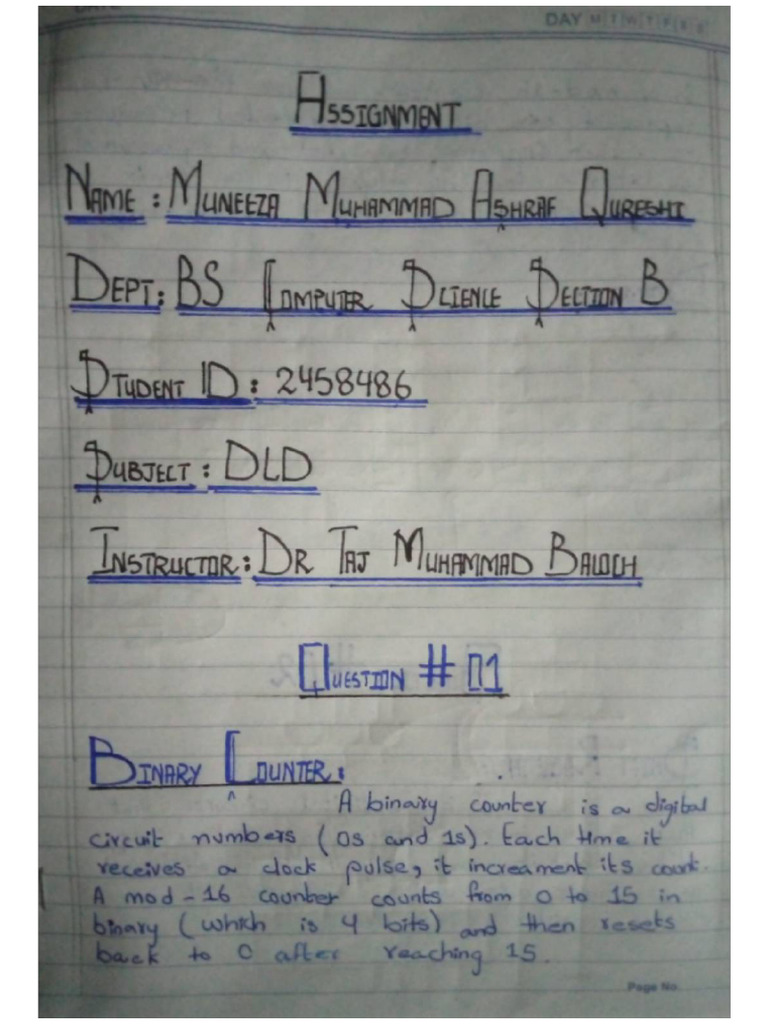 DAY M T W T F S S
ASSIGNMENT
NAME : MUNEEZA MUHAMMAD ASHRAF QURESHI
DEPT: BS COMPUTER SCIENCE SECTION B
STUDENT ID : 2458486
SUBJECT : DLD
INSTRUCTOR: DR TAJ MUHAMMAD BALOCH
QUESTION # 01
BINARY COUNTER:
A binary counter is a digital
circuit numbers (0s and 1s). Each time it
receives a clock pulse, it increament its count.
A mod-16 counter counts from 0 to 15 in
binary (which is 4 bits) and then resets
back to 0 after reaching 15.
Page No.